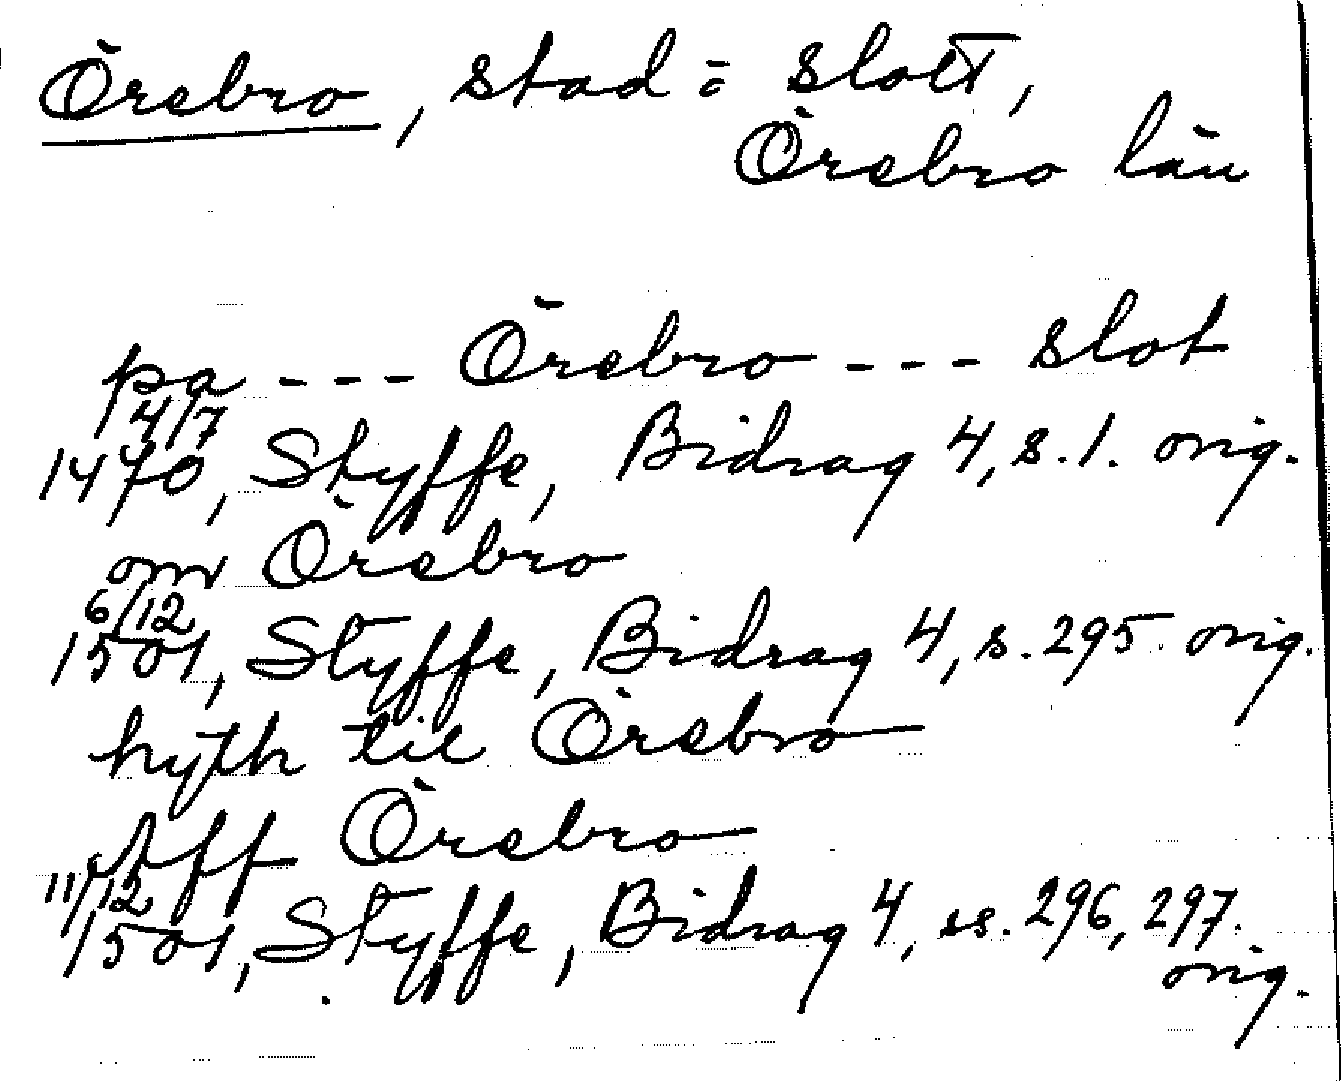 Örebro, stad = slott,
Örebro län
pa --- Örebro --- slot
14/7
1470, Styffe, Bidrag 4, s. 1. orig.
om Örebro
6/12
1501, Styffe, Bidrag 4, s. 295 orig.
hyth til Örebro
Aff Örebro
11/12
1501, Styffe, Bidrag 4, ss. 296, 297.
orig.